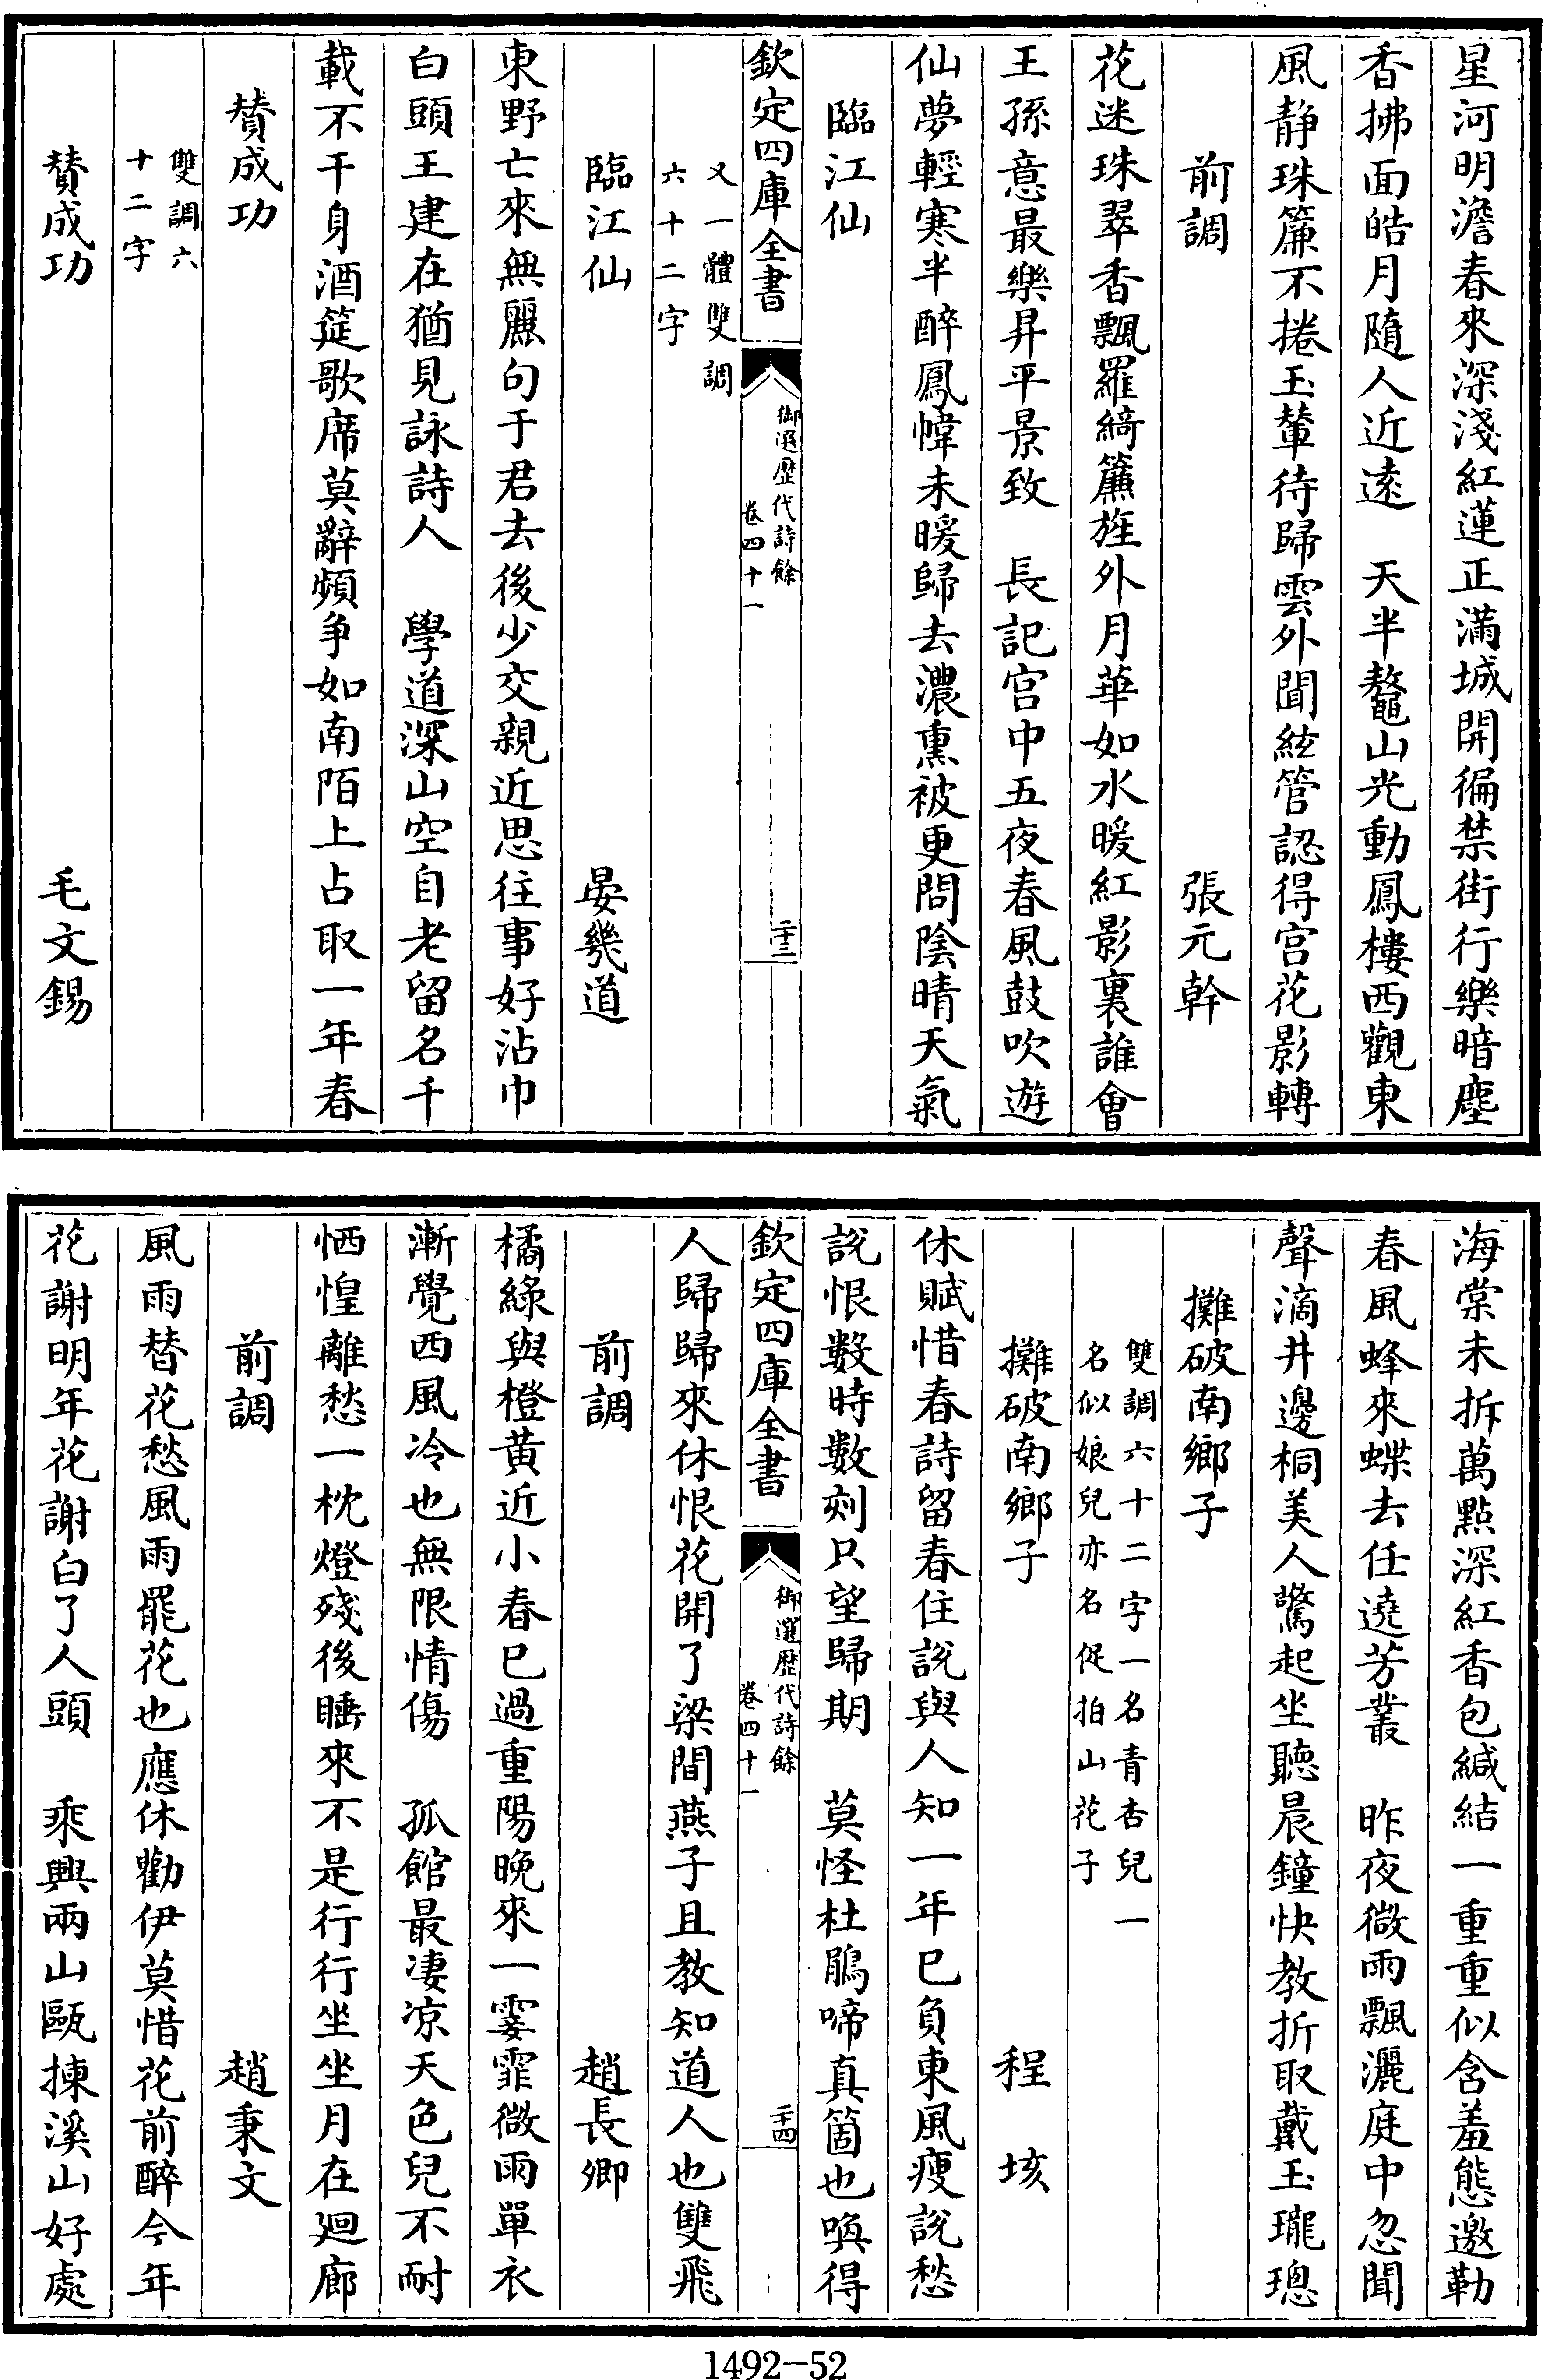 星河明澹春來深淺紅蓮正滿城開徧禁街行樂暗塵
香拂面皓月隨人近逺　天半鼇山光動鳳樓西觀東
風靜珠簾不捲玉輦待歸雲外聞絃管認得宫花影轉
前調　張元幹
花迷珠翠香飄羅綺簾旌外月華如水暖紅影裏誰會
王孫意最樂昇平景致　長記宫中五夜春風鼓吹遊
仙夢輕寒半醉鳳幃未暖歸去濃熏被更問陰晴天氣
臨江仙
欽定四庫全書
御選歴代詩餘
卷四十一
二十三
又一體雙調
六十二字
臨江仙　晏幾道
東野亡來無麗句于君去後少交親近思往事好沾巾
白頭王建在猶見詠詩人　學道深山空自老留名千
載不干身酒筵歌席莫辭頻争如南陌上占取一年春
賛成功
雙調六
十二字
賛成功　毛文錫
海棠未拆萬點深紅香包緘結一重重似含羞態邀勒
春風蜂來蝶去任遶芳叢　昨夜微雨飄灑庭中忽聞
聲滴井邊桐美人驚起坐聽晨鐘快教折取戴玉瓏璁
攤破南鄉子
雙調六十二字一名青杏兒一
名似娘兒亦名促拍山花子
攤破南鄉子　程垓
休賦惜春詩留春住說與人知一年已負東風瘦說愁
說恨數時數刻只望歸期　莫怪杜鵑啼真箇也喚得
欽定四庫全書
御選歴代詩餘
卷四十一
二十四
人歸歸來休恨花開了梁間燕子且教知道人也雙飛
前調　趙長卿
橘緑與橙黄近小春已過重陽晚來一霎霏微雨單衣
漸覺西風冷也無限情傷　孤館最凄凉天色兒不耐
恓惶離愁一枕燈殘後睡來不是行行坐坐月在廻廊
前調　趙秉文
風雨替花愁風雨罷花也應休勸伊莫惜花前醉今年
花謝明年花謝白了人頭　乘興兩山甌揀溪山好處
1492-52